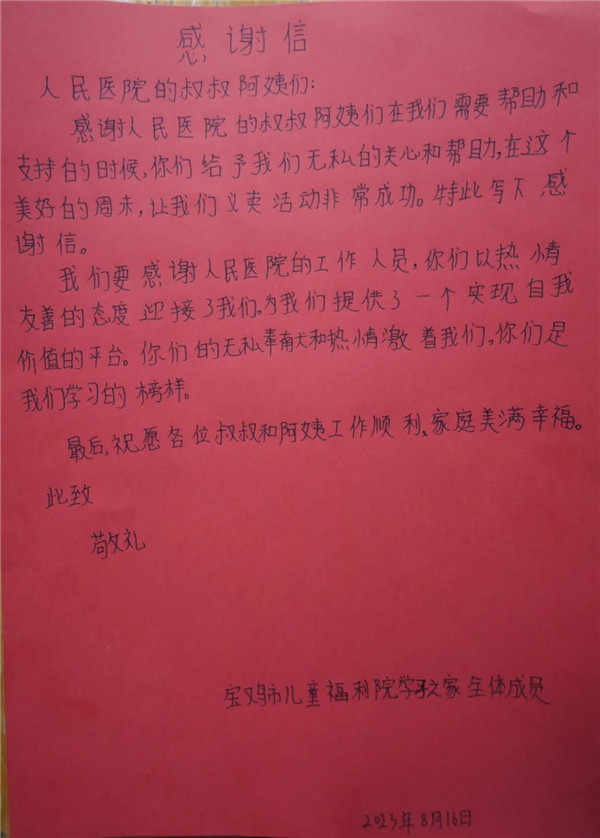 感谢信
人民医院的叔叔阿姨们:
感谢人民医院的叔叔阿姨们在我们需要帮助和
支持的时候,你们给予我们无私的关心和帮助,在这个
美好的周末,让我们义卖活动非常成功。特此写下感
谢信。
我们要感谢人民医院的工作人员,你们以热情
友善的态度迎接了我们,为我们提供了一个实现自我
价值的平台。你们的无私奉献和热情激着我们,你们是
我们学习的榜样。
最后,祝愿各位叔叔和阿姨工作顺利、家庭美满幸福。
此致
敬礼
宝鸡市儿童福利院学子之家全体成员
2023年8月16日